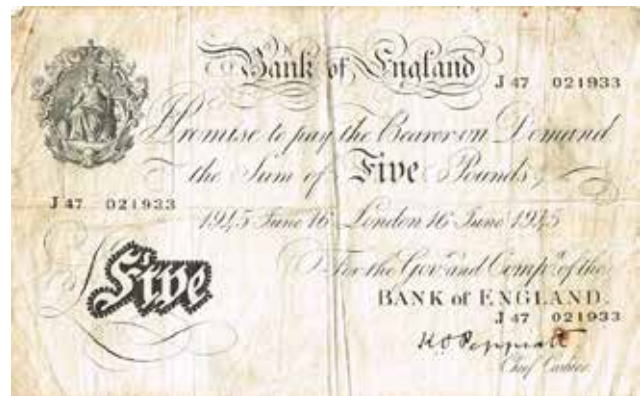 Bank of England
J 47 021933
I Promise to pay the Bearer on Demand
the Sum of Five Pounds
J 47 021933
1945 June 16 London 16 June 1945
For the Govr. and Compa. of the
BANK of ENGLAND.
J 47 021933
K O Peppiatt
Chief Cashier.
£ Five